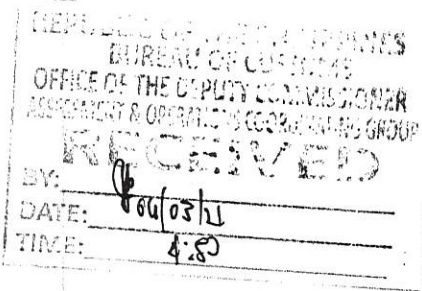 REPUBLIC OF THE PHILIPPINES
BUREAU OF CUSTOMS
OFFICE OF THE DEPUTY COMMISSIONER
ASSESSMENT & OPERATIONS COORDINATING GROUP
RECEIVED
BY:
DATE: 04/03/21
TIME: